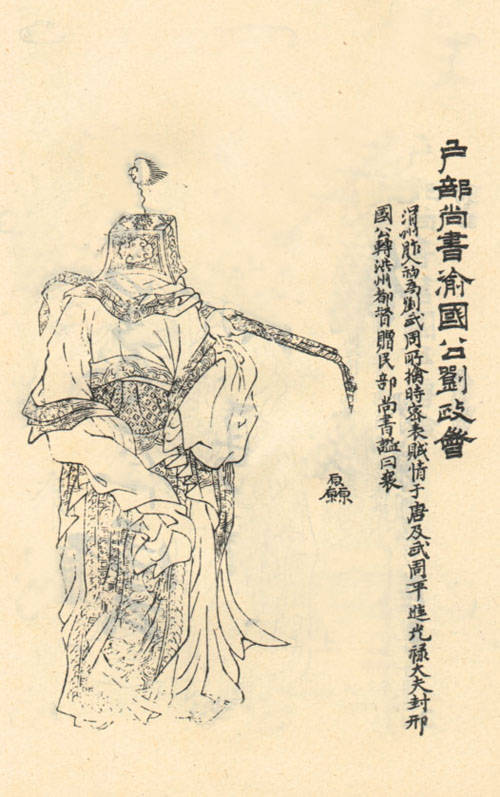 戶部尚書渝國公劉政會
滑州胙人初為劉武周所擒時密表賊情于唐及武周平進光祿大夫封邢
國公轉洪州都督贈民部尚書諡曰襄